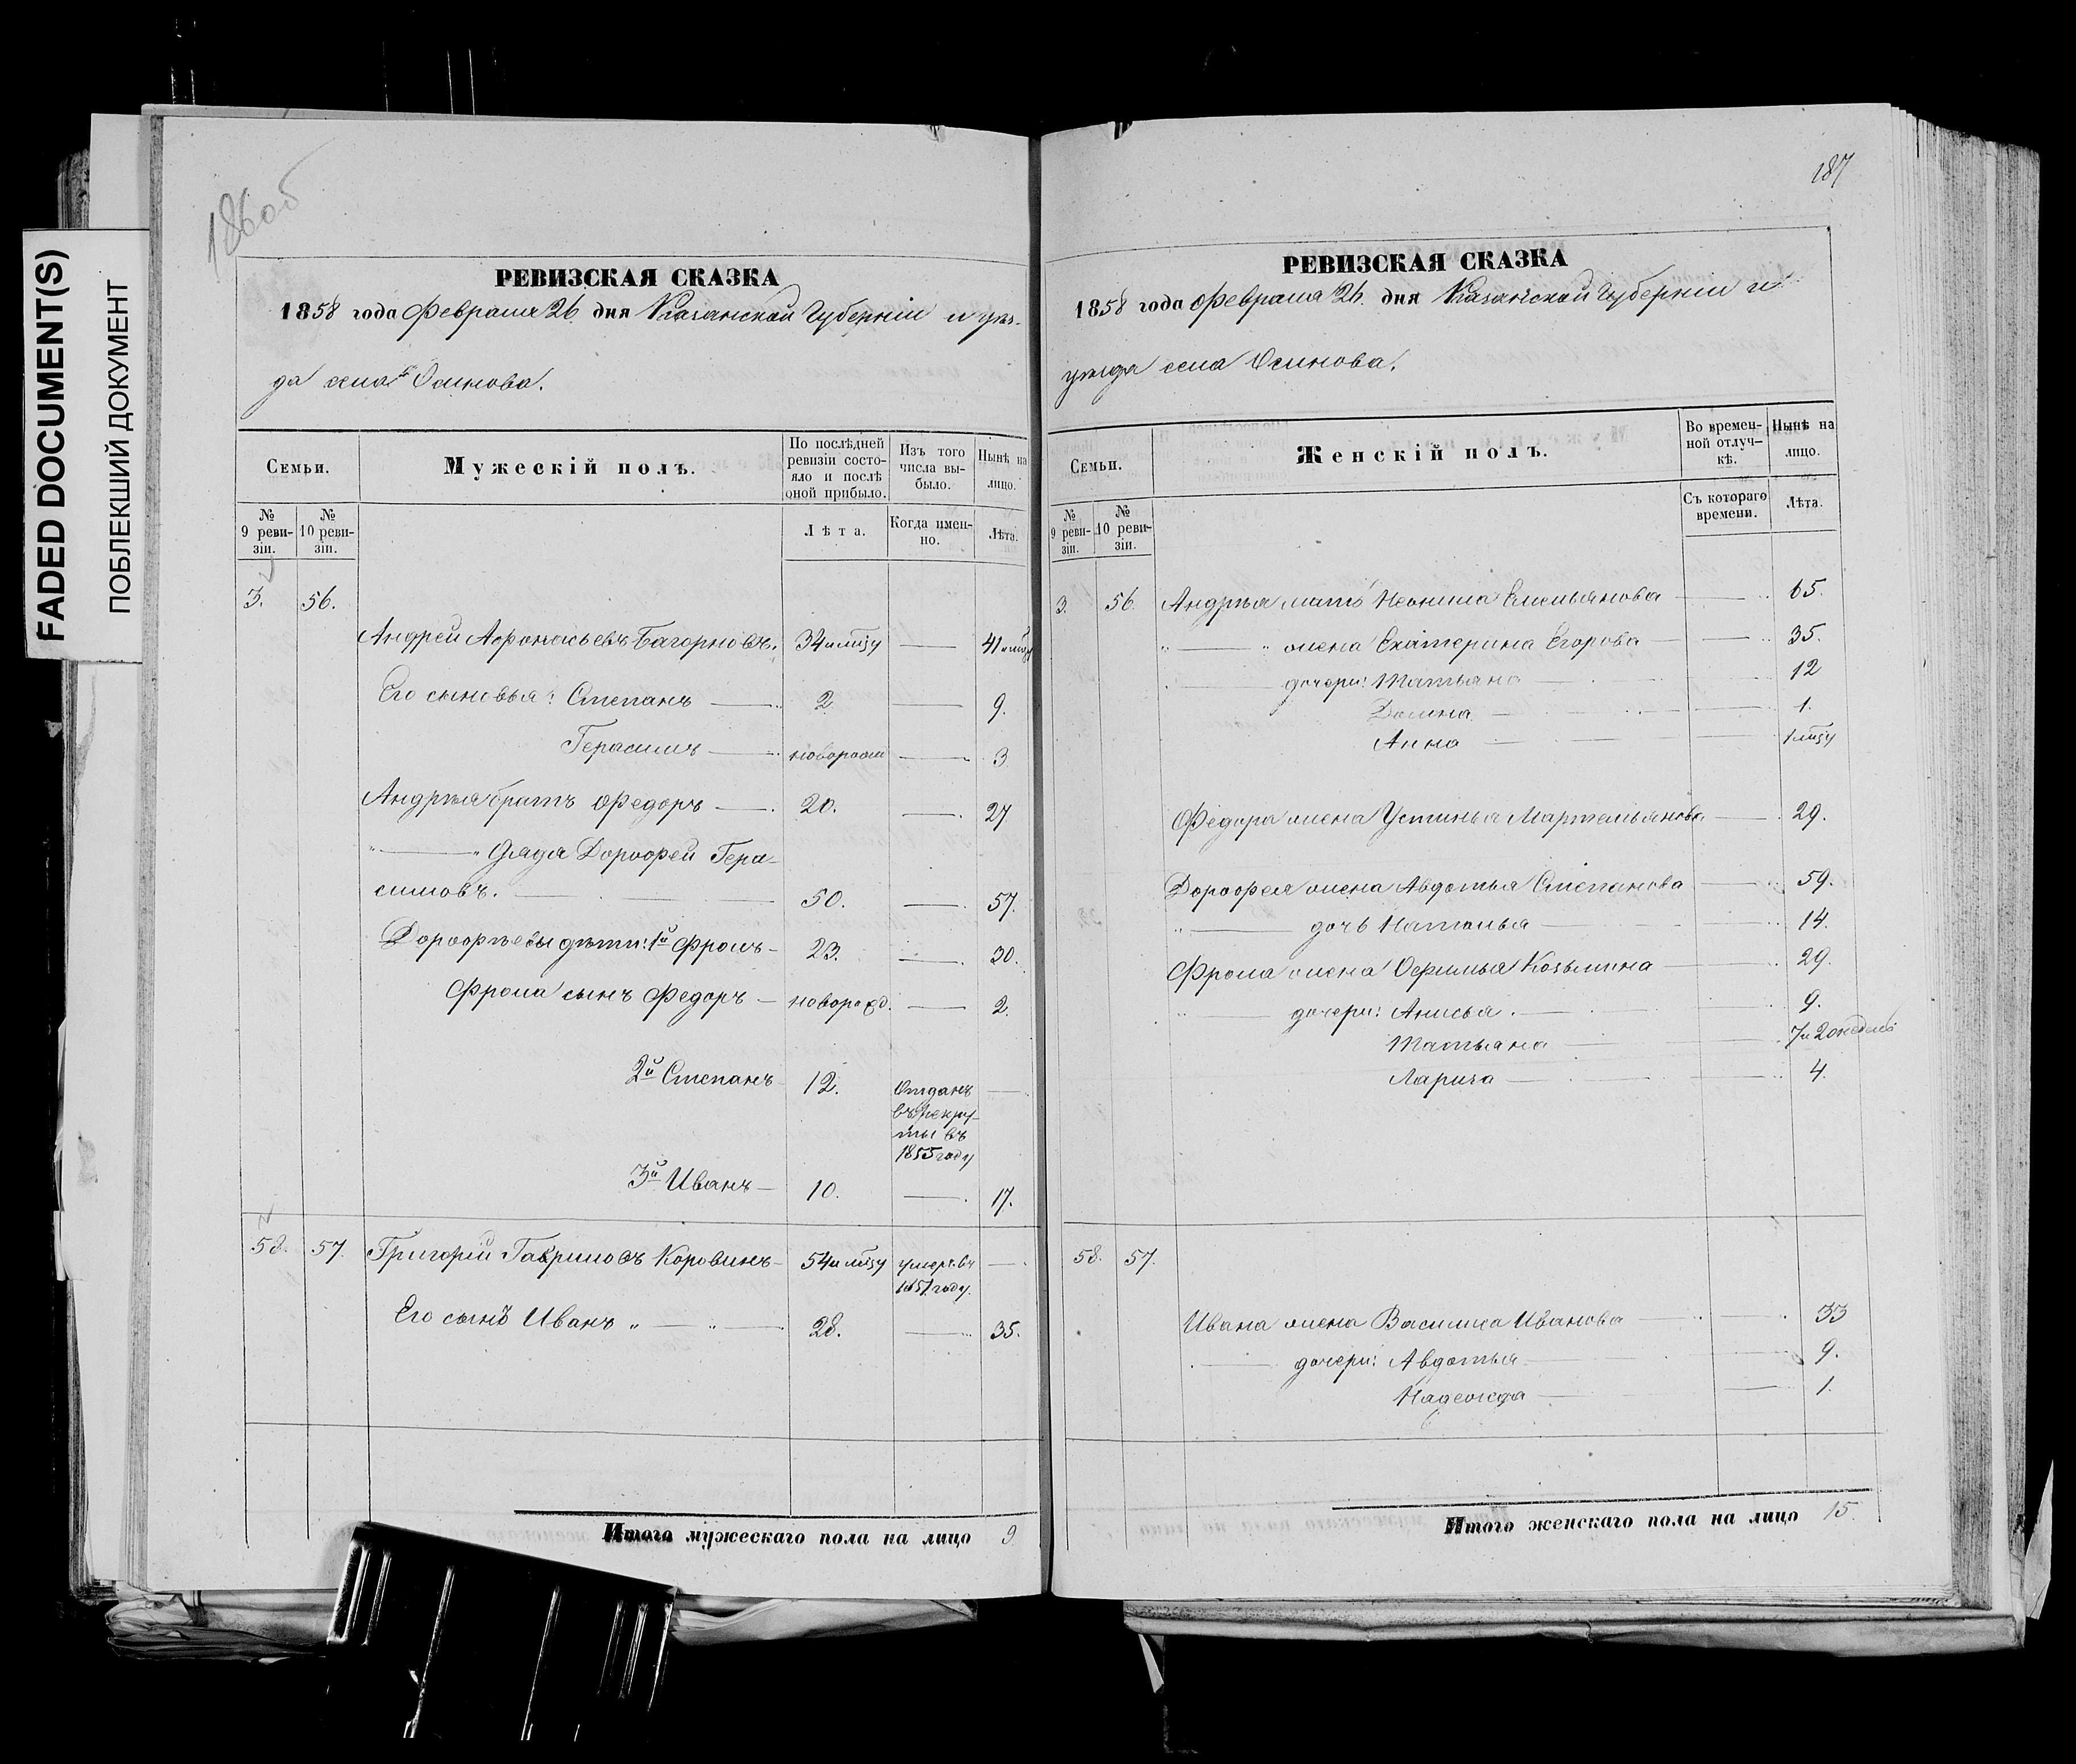 FADED DOCUMENT(S)
ПОБЛЕКШИЙ ДОКУМЕНТ
186об
РЕВИЗСКАЯ СКАЗКА
1858 года Февраля 26 дня Казанской Губерніи и уѣз-
да села Осинова.
Семьи.
Мужескій полъ.
По послѣдней ревизіи состояло и послѣ оной прибыло.
Изъ того числа выбыло.
Нынѣ на лицо.
№ 9 ревизіи.
№ 10 ревизіи.
Лѣта.
Когда именно.
Лѣта.
3. 56.
Андрей Афонасьевъ Багорновъ. 34 и мцу — 41 и мцу
Его сыновья: Степанъ — 2 — 9.
Герасимъ — новорож — 3
Андрея братъ Федоръ — 20. — 27
" — " Дядя Дорофей Гера-
симовъ. — 50. — 57.
Дорофѣевы дѣти: 1й Фролъ — 23. — 30.
Фрола сынъ Федоръ — поворожд. — 2.
2й Степанъ 12. Отданъ —
въ рекру-
ты въ
1855 году
3й Иванъ — 10. — 17.
58. 57. Григорій Гавриловъ Коровинъ — 54 и мцу умеръ въ —
1851 году.
Его сынъ Иванъ " — " — 28. — 35.
Итого мужескаго пола на лицо 9
187
РЕВИЗСКАЯ СКАЗКА
1858 года Февраля 26. дня Казанской Губерніи и
уѣзда села Осинова.
Семьи.
Женскій полъ.
Во временной отлучкѣ.
Нынѣ на лицо.
№ 9 ревизіи.
№ 10 ревизіи.
Съ котораго времени.
Лѣта.
3. 56. Андрея мать Неонила Емельянова — 65.
" — " жена Екатерина Егорова — 35.
— дочери: Татьяна — 12
Домна — 1.
Анна — 1 мцу
Федора жена Устинья Мартемьянова — 29.
Дорофея жена Авдотья Степанова — 59.
" — дочь Наталья — 14.
Фрола жена Офимья Козьмина — 29.
" — дочери: Анисья. — 9.
Татьяна — 7 и 2 недель
Лариса — 4.
58. 57.
Ивана жена Василиса Иванова — 33
— дочери: Авдотья — 9.
Надежда — 1.
Итого женскаго пола на лицо 15.